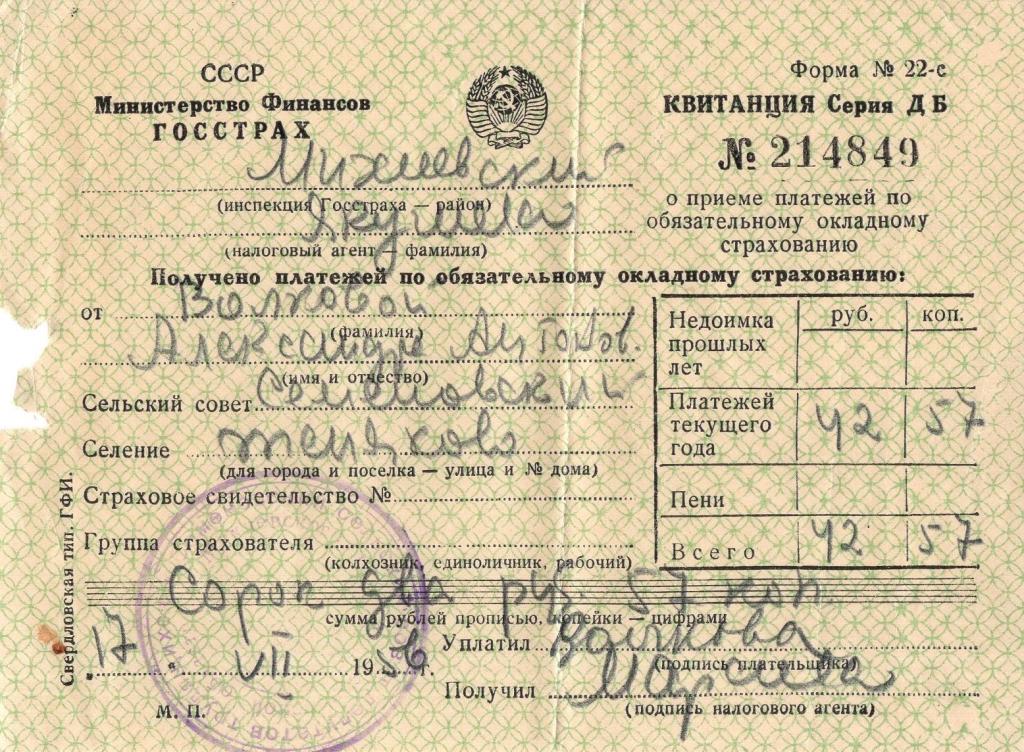 СССР
Министерство Финансов
ГОССТРАХ
Форма № 22-с
КВИТАНЦИЯ Серия ДБ
№ 214849
о приеме платежей по
обязательному окладному
страхованию
(инспекция Госстраха — район)
(налоговый агент — фамилия)
Получено платежей по обязательному окладному страхованию:
от Волковой
(фамилия)
Александр Антонов.
(имя и отчество)
Сельский совет Семеновский
Селение
(для города и поселка — улица и № дома)
Страховое свидетельство №
Группа страхователя
(колхозник, единоличник, рабочий)
руб. коп.
Недоимка
прошлых
лет
Платежей
текущего
года 42 57
Пени
Всего 42 57
Сорок два руб. 57 коп.
сумма рублей прописью, копейки — цифрами
17 " VII 1956 г.
Уплатил Волкова
(подпись плательщика)
Получил
(подпись налогового агента)
М. П.
Свердловская тип. ГФИ.